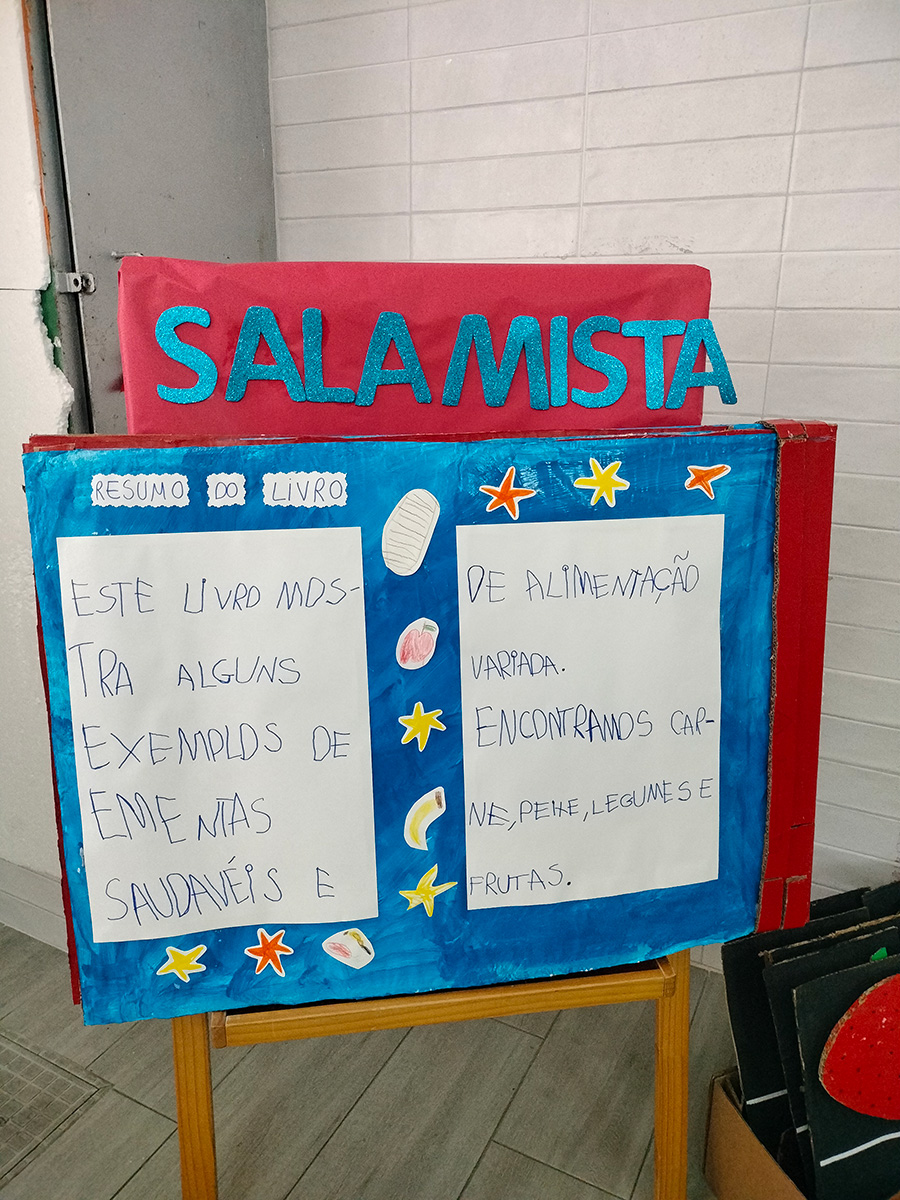 SALA MISTA
RESUMO DO LIVRO
ESTE LIVRO MOS-
TRA ALGUNS
EXEMPLOS DE
EMENTAS
SAUDAVÉIS E
DE ALIMENTAÇÃO
VARIADA.
ENCONTRAMOS CAR-
NE, PEIXE, LEGUMES E
FRUTAS.